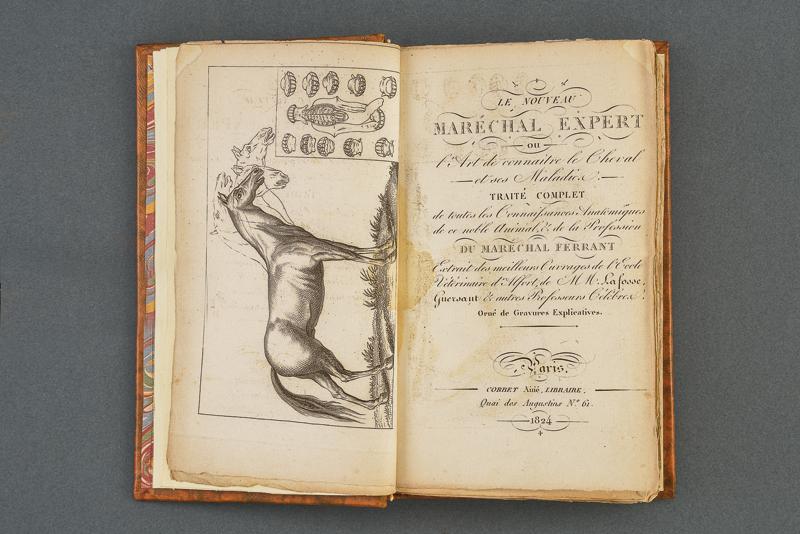 LE NOUVEAU
MARÉCHAL EXPERT
ou
l'Art de connaitre le Cheval
et ses Maladies.
TRAITÉ COMPLET
de toutes les Connaissances Anatomiques
de ce noble Animal, & de la Profession
DU MARÉCHAL FERRANT
Extrait des meilleurs Ouvrages de l'Ecole
Vétérinaire d'Alfort, de M.M. Lafosse,
Guersant & autres Professeurs Célèbres.
Orné de Gravures Explicatives.
Paris,
CORBET Ainé, LIBRAIRE,
Quai des Augustins N.º 61.
1824